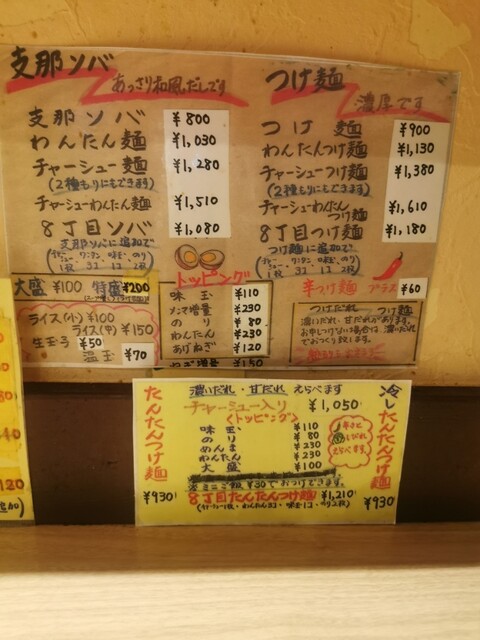 支那ソバ
あっさり和風だしです
支那ソバ ¥800
わんたん麺 ¥1,030
チャーシュー麺 ¥1,280
(2種もりにもできます)
チャーシューわんたん麺 ¥1,510
8丁目ソバ ¥1,080
支那ソバに追加で
大盛 ¥100 特盛 ¥200
ライス(小) ¥100
ライス(中) ¥150
生玉子 ¥50
温玉 ¥70
トッピング
味玉 ¥110
メンマ増量 ¥230
のり ¥80
わんたん ¥230
あげねぎ ¥120
ねぎ増量 ¥150
つけ麺
濃厚です
つけ麺 ¥900
わんたんつけ麺 ¥1,130
チャーシューつけ麺 ¥1,380
(2種もりにもできます)
チャーシューわんたん
つけ麺 ¥1,610
8丁目つけ麺 ¥1,180
つけ麺に追加で
辛つけ麺 プラス ¥60
つけだれ
濃いだれ・甘だれ えらべます
チャーシュー入り ¥1,050
<トッピング>
味玉 ¥110
のり ¥80
めんま ¥230
わんたん ¥230
大盛 ¥100
¥30でおつけできます。
8丁目たんたんつけ麺 ¥1,210
たんたんつけ麺
¥930
冷したんたんつけ麺
¥930